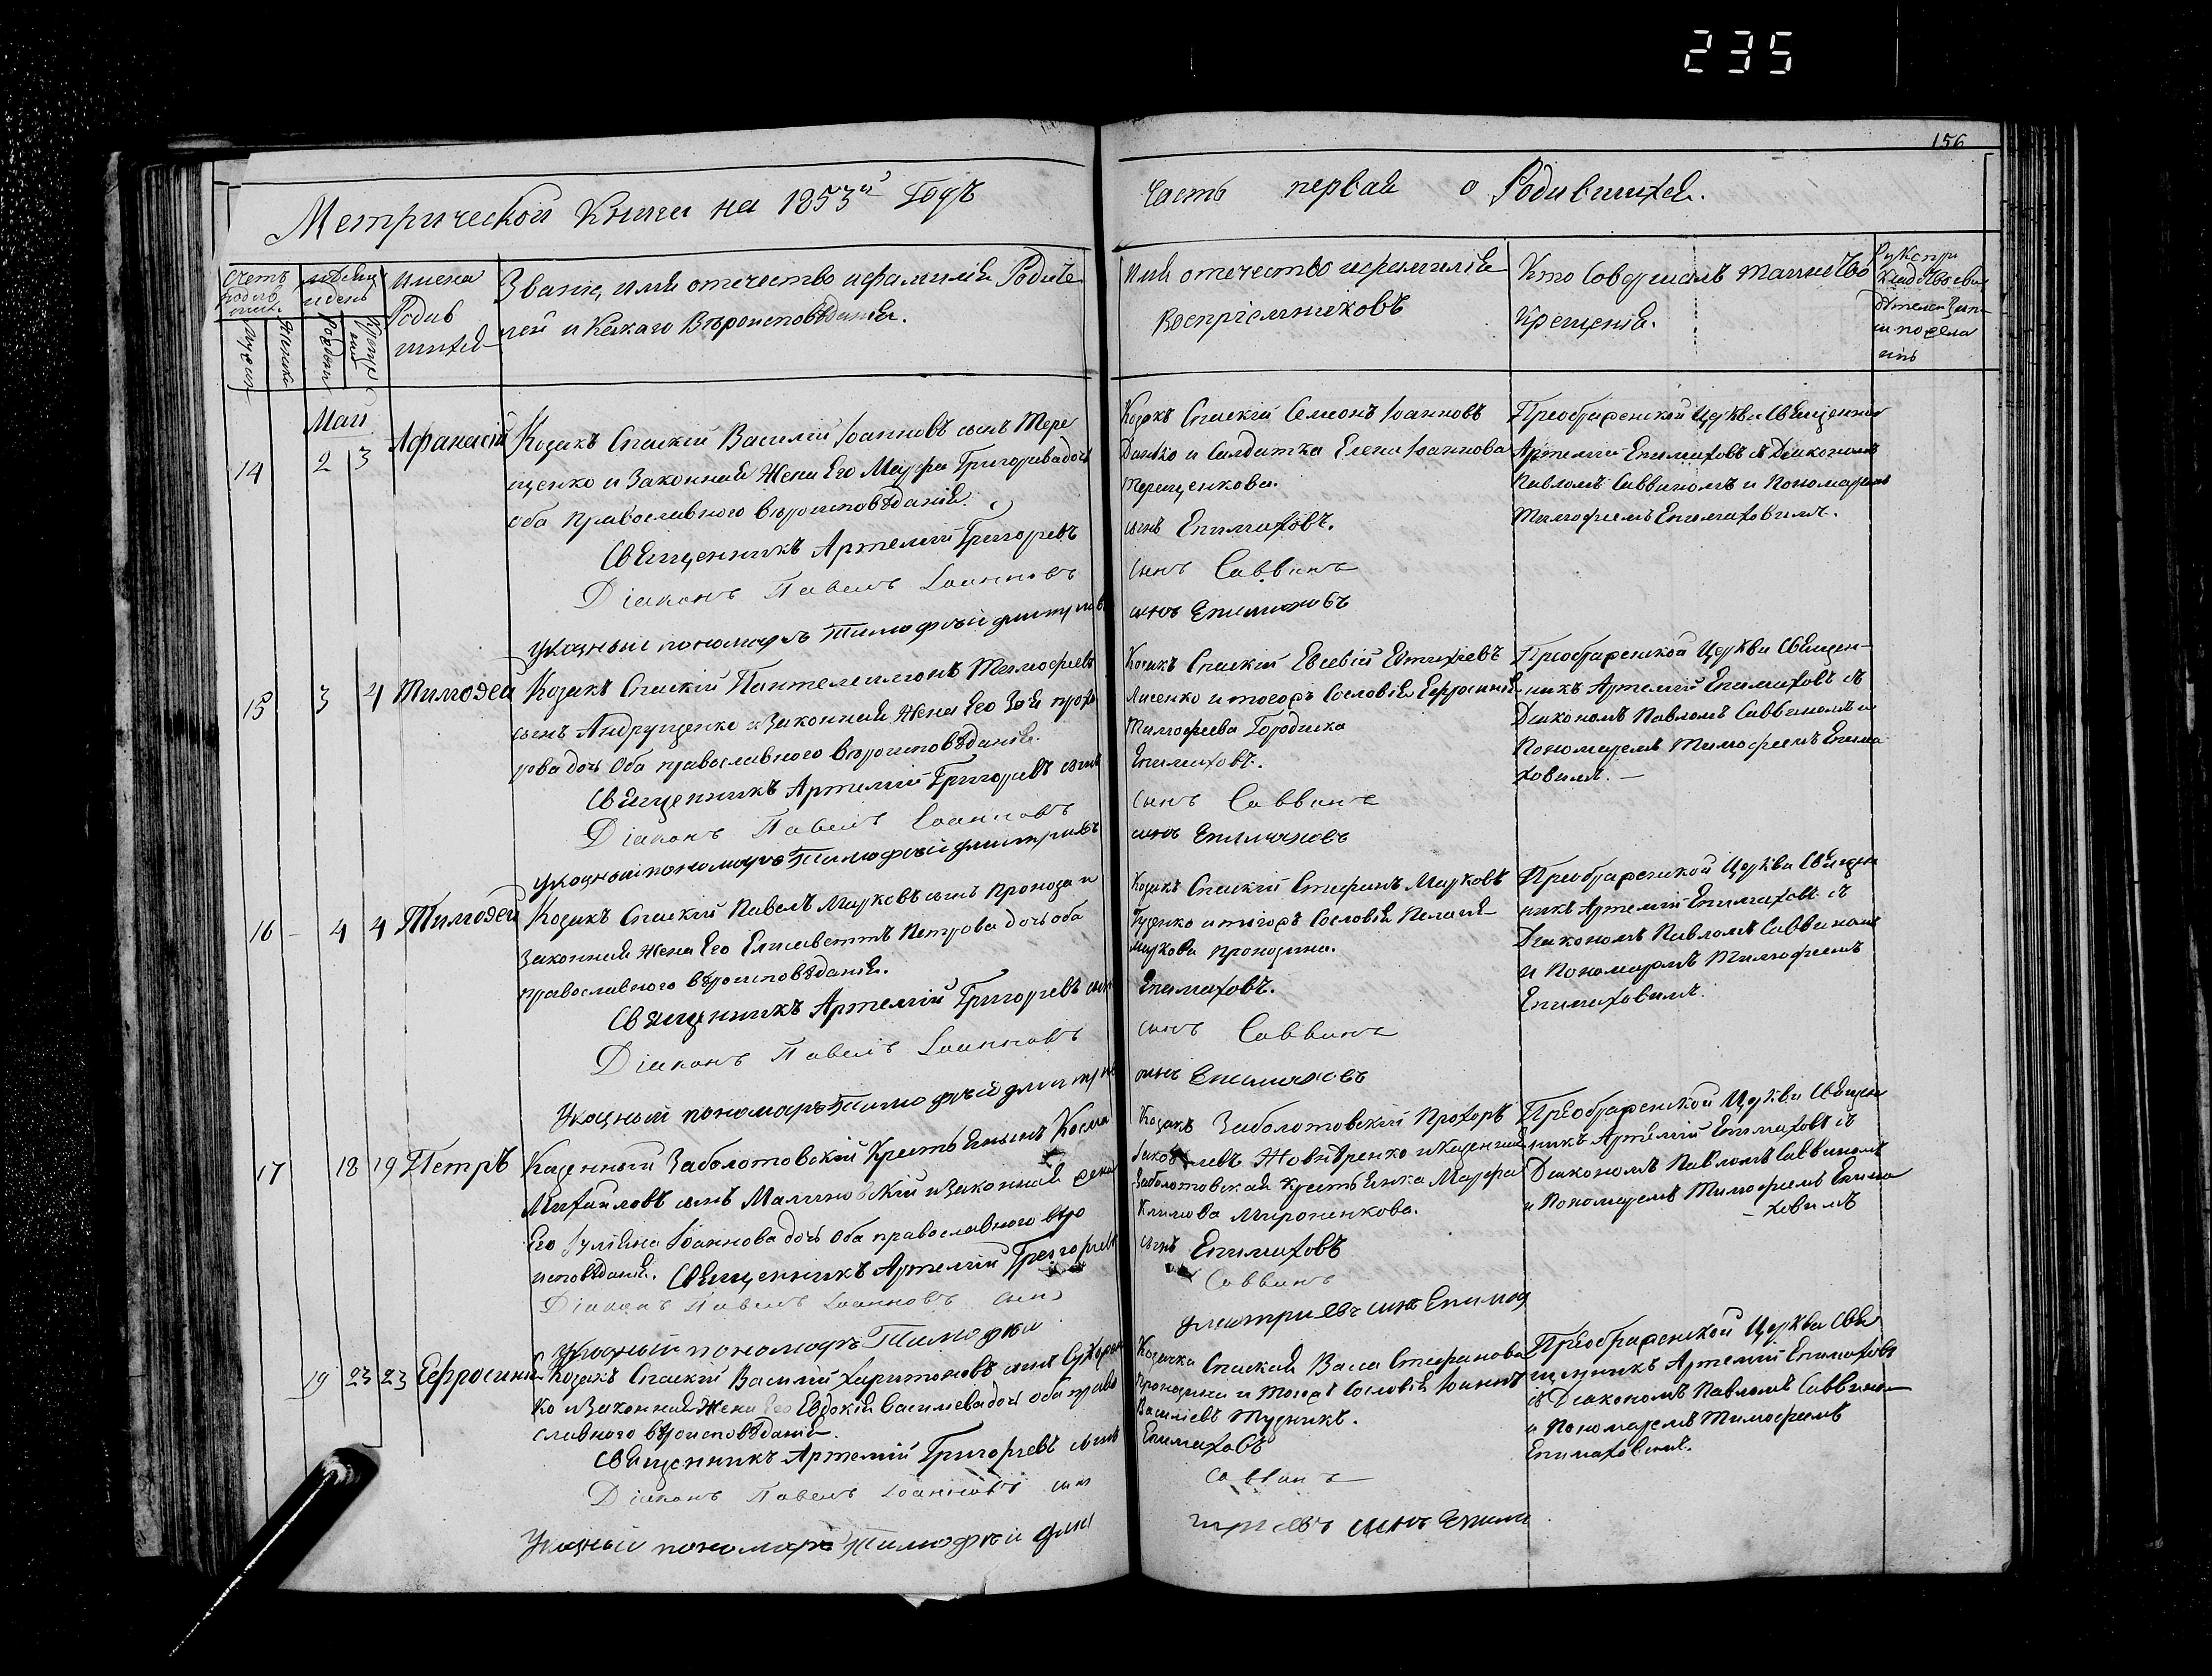 235
156
Метрической Книги на 1853й Годъ
Часть первая о Родившихся.
Счетъ родив
шихъ
Мужеска
Женска
мѣсяцъ
и день
Рожденія
Крещенія
имена
Родив
шихся
Званіе, имя отечество и фамилія Родите
лей и Какаго Вѣроисповѣданія.
Имя отечество и фамилія
Воспріемниковъ
Кто Совершалъ таинство
Крещенія.
Маія
14
2
3
Афанасій
Козакъ Спаскій Василій Іоанновъ сынъ Тере
щенко и Законная Жена Его Марфа Григорьева дочь
оба Православного вѣроисповѣданія.
Священникъ Артемій Григорьевъ
Діаконъ Павелъ Іоанновъ
указный пономарь Тимофѣй Дмитріевъ
Козакъ Спаскій Семіонъ Іоанновъ
Данко и Салдатка Елена Іоаннова
Терещенкова.
сынъ Епимаховъ.
Сынъ Саввинъ
сынъ Епимаховъ
Преображенской Церкви Священникъ
Артемій Епимаховъ съ Діакономъ
Павломъ Саввиномъ и Пономаремъ
Тимофеемъ Епимаховимъ.
15
3
4
Тимофей
Козакъ Спаскій Пантелеимонъ Тимофеевъ
сынъ Андрущенко и Законная Жена Его Зоя прохо
рова дочь Оба православного вѣроисповѣданія.
Священникъ Артемій Григорьевъ сынъ
Діаконъ Павелъ Іоанновъ
указный пономарь Тимофѣй Дмитріевъ
Козакъ Спаскій Евсевій Евтихіевъ
Лисенко и тогожъ Сословія Ефросинія
Тимофеева Городиска
Епимаховъ.
Сынъ Саввинъ
сынъ Епимаховъ
Преображенской Церкви Священ-
никъ Артемій Епимаховъ съ
Діакономъ Павломъ Саввиномъ и
Пономаремъ Тимофеемъ Епима
ховимъ. —
16
4
4
Тимофей
Козакъ Спаскій Павелъ Марковъ сынъ Проноза и
Законная Жена Его Елисаветтъ Петрова дочь оба
православного вѣроисповѣданія.
Священникъ Артемій Григорьевъ сынъ
Діаконъ Павелъ Іоанновъ
Указный пономарь Тимофѣй Дмитріевъ
Козакъ Спаскій Стефанъ Марковъ
Гуценко и тогожъ Сословія Пелагія
Маркова Пронозина.
Епимаховъ.
сынъ Саввинъ
сынъ Епимаховъ
Преображенской Церкви Священ
никъ Артемій Епимаховъ съ
Діакономъ Павломъ Саввиномъ
и Пономаремъ Тимофеемъ
Епимаховимъ.
17
18
19
Петръ
Казенный Заболотовскій Крестьянинъ Косма
Михайловъ сынъ Малиновскій и Законная жена
Его Іуліяна Іоаннова дочь Оба православного вѣро
исповѣданія. Священникъ Артемій Григорьевъ
Діаконъ Павелъ Іоанновъ сынъ
Указный пономарь Тимофѣй
Козакъ Заболотовскій Прохоръ
Іаковлевъ и Казенная
Заболотовская Крестьянка Марфа
Климова Мироненкова.
сынъ Епимаховъ
Саввинъ
Дмитріевъ сынъ Епимах
Преображенской Церкви Священ
никъ Артемій Епимаховъ съ
Діакономъ Павломъ Саввиномъ
и Пономаремъ Тимофеемъ Епима
- ховимъ
19
23
23
Ефросинія
Козакъ Спаскій Василій Харитоновъ сынъ Сухорев
ко и Законная Жена Его Евдокія Василіева дочь оба право
славного вѣроисповѣданія.
Священникъ Артемій Григорьевъ сынъ
Діаконъ Павелъ Іоанновъ сын
Указный пономарь Тимофѣй Дми
Козачка Спаская Васа Стефанова
Пронозина и тогожъ Сословія Іоаннъ
Василіевъ Тудникъ.
Епимаховъ
Саввинъ
тріевъ сынъ Епима
Преображенской Церкви Свя
щенникъ Артемій Епимаховъ
съ Діакономъ Павломъ Саввином
и Пономаремъ Тимофеемъ
Епимаховимъ.